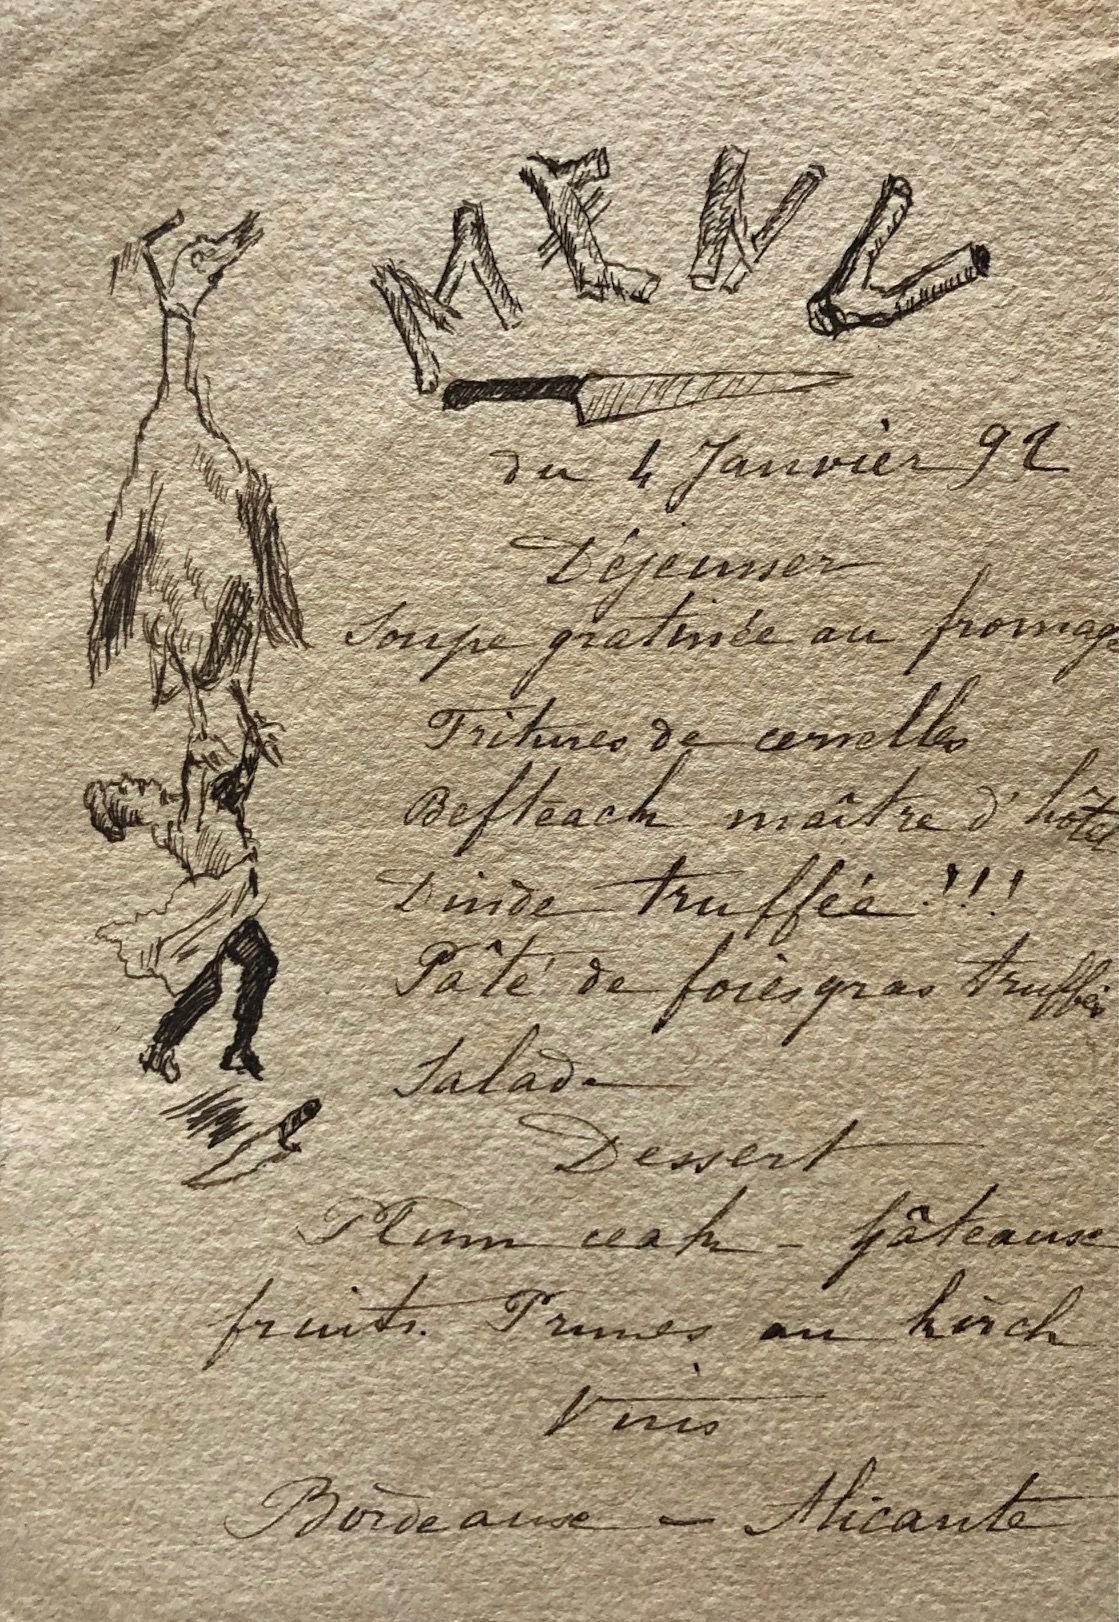 MENU
du 4 Janvier 92
Déjeunner
Soupe gratinée au fromage
Fritures de cervelles
Befteack maître d'hôtel
Dinde truffée !!!
Pâté de foies gras truffés
Salade
Dessert
Plum ceak - Gâteaux
fruits. Prunes au kirch
Vins
Bordeaux - Alicante